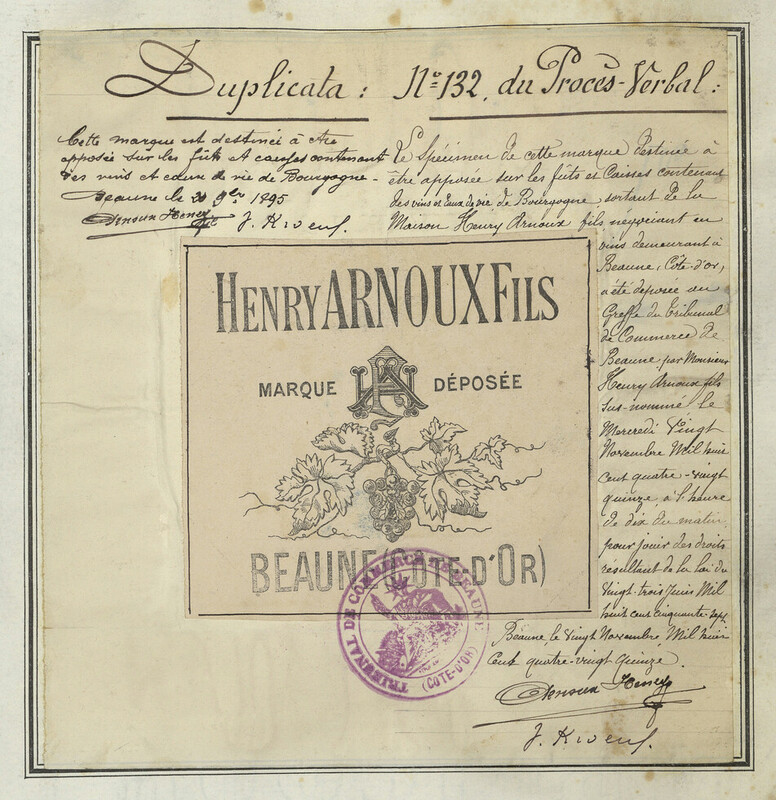 Duplicata : N° 132, du Procès-Verbal :
Cette marque est destinée à être
apposée sur les fûts et caisses contenant
des vins et eaux de vie de Bourgogne -
Beaune le 20 9bre 1895
Arnoux Henry
Le Spécimen de cette marque destinée à
être apposée sur les fûts et Caisses contenant
des vins et Eaux de vie de Bourgogne, sortant de la
Maison Henry Arnoux fils négociant en
vins demeurant à
Beaune, Côte-d'or,
a été déposée au
Greffe du Tribunal
de Commerce de
Beaune par Monsieur
Henry Arnoux fils
sus-nommé le
Mercredi Vingt
Novembre Mil huit
cent quatre-vingt
quinze à l'heure
de dix du matin
pour jouir des droits
résultant de la loi du
Vingt-trois Juin Mil
huit cent cinquante-sept.
Beaune, le Vingt Novembre Mil huit
Cent quatre-vingt quinze.
Arnoux Henry
HENRY ARNOUX FILS
MARQUE DÉPOSÉE
BEAUNE (COTE-D'OR)
TRIBUNAL DE COMMERCE DE BEAUNE
(COTE-D'OR)